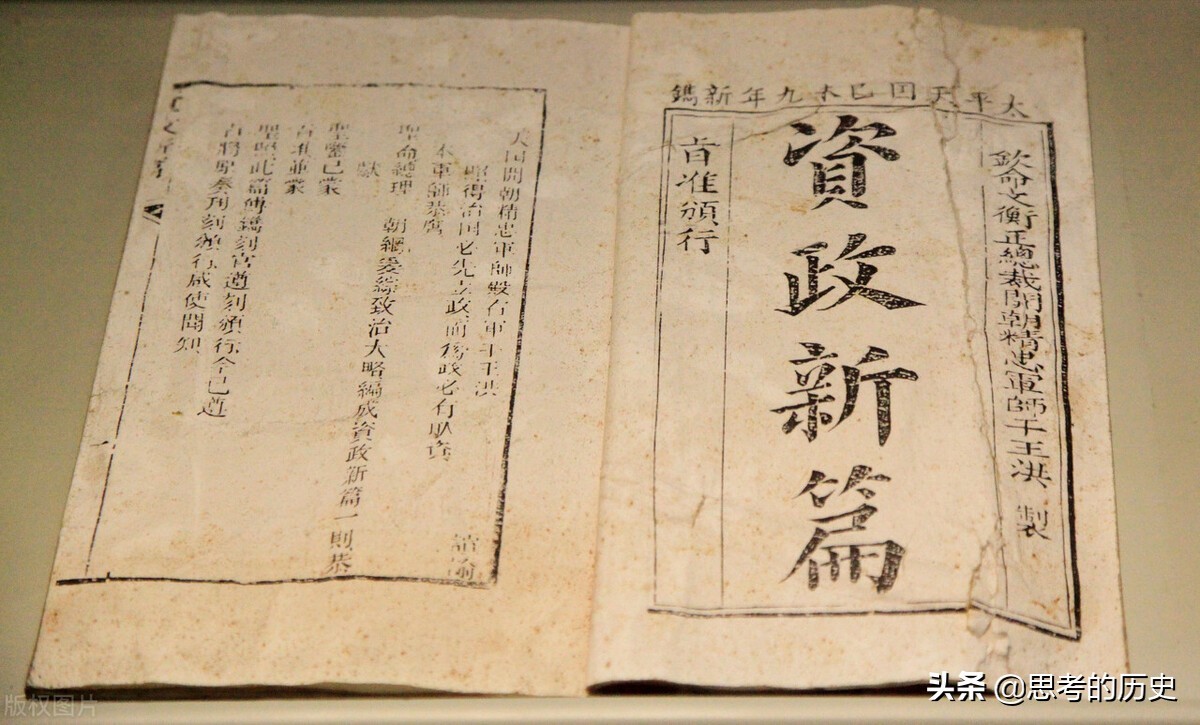 太平天囯己未九年新鐫
欽命文衡正總裁開朝精忠軍師干王洪 製
資政新篇
旨准頒行
天囯開朝精忠軍師殿右軍干王洪 諭
照得治囯必先立政而爲政必有取資
本軍師恭膺
聖命總理 朝綱爰綜致治大略編成資政新篇一則恭
獻
聖鑒已蒙
旨准並蒙
聖照此篇傳鐫刻官遵刻頒行今已遵
旨將原奏刊刻頒行咸使聞知
一
版权图片
头条 @思考的历史